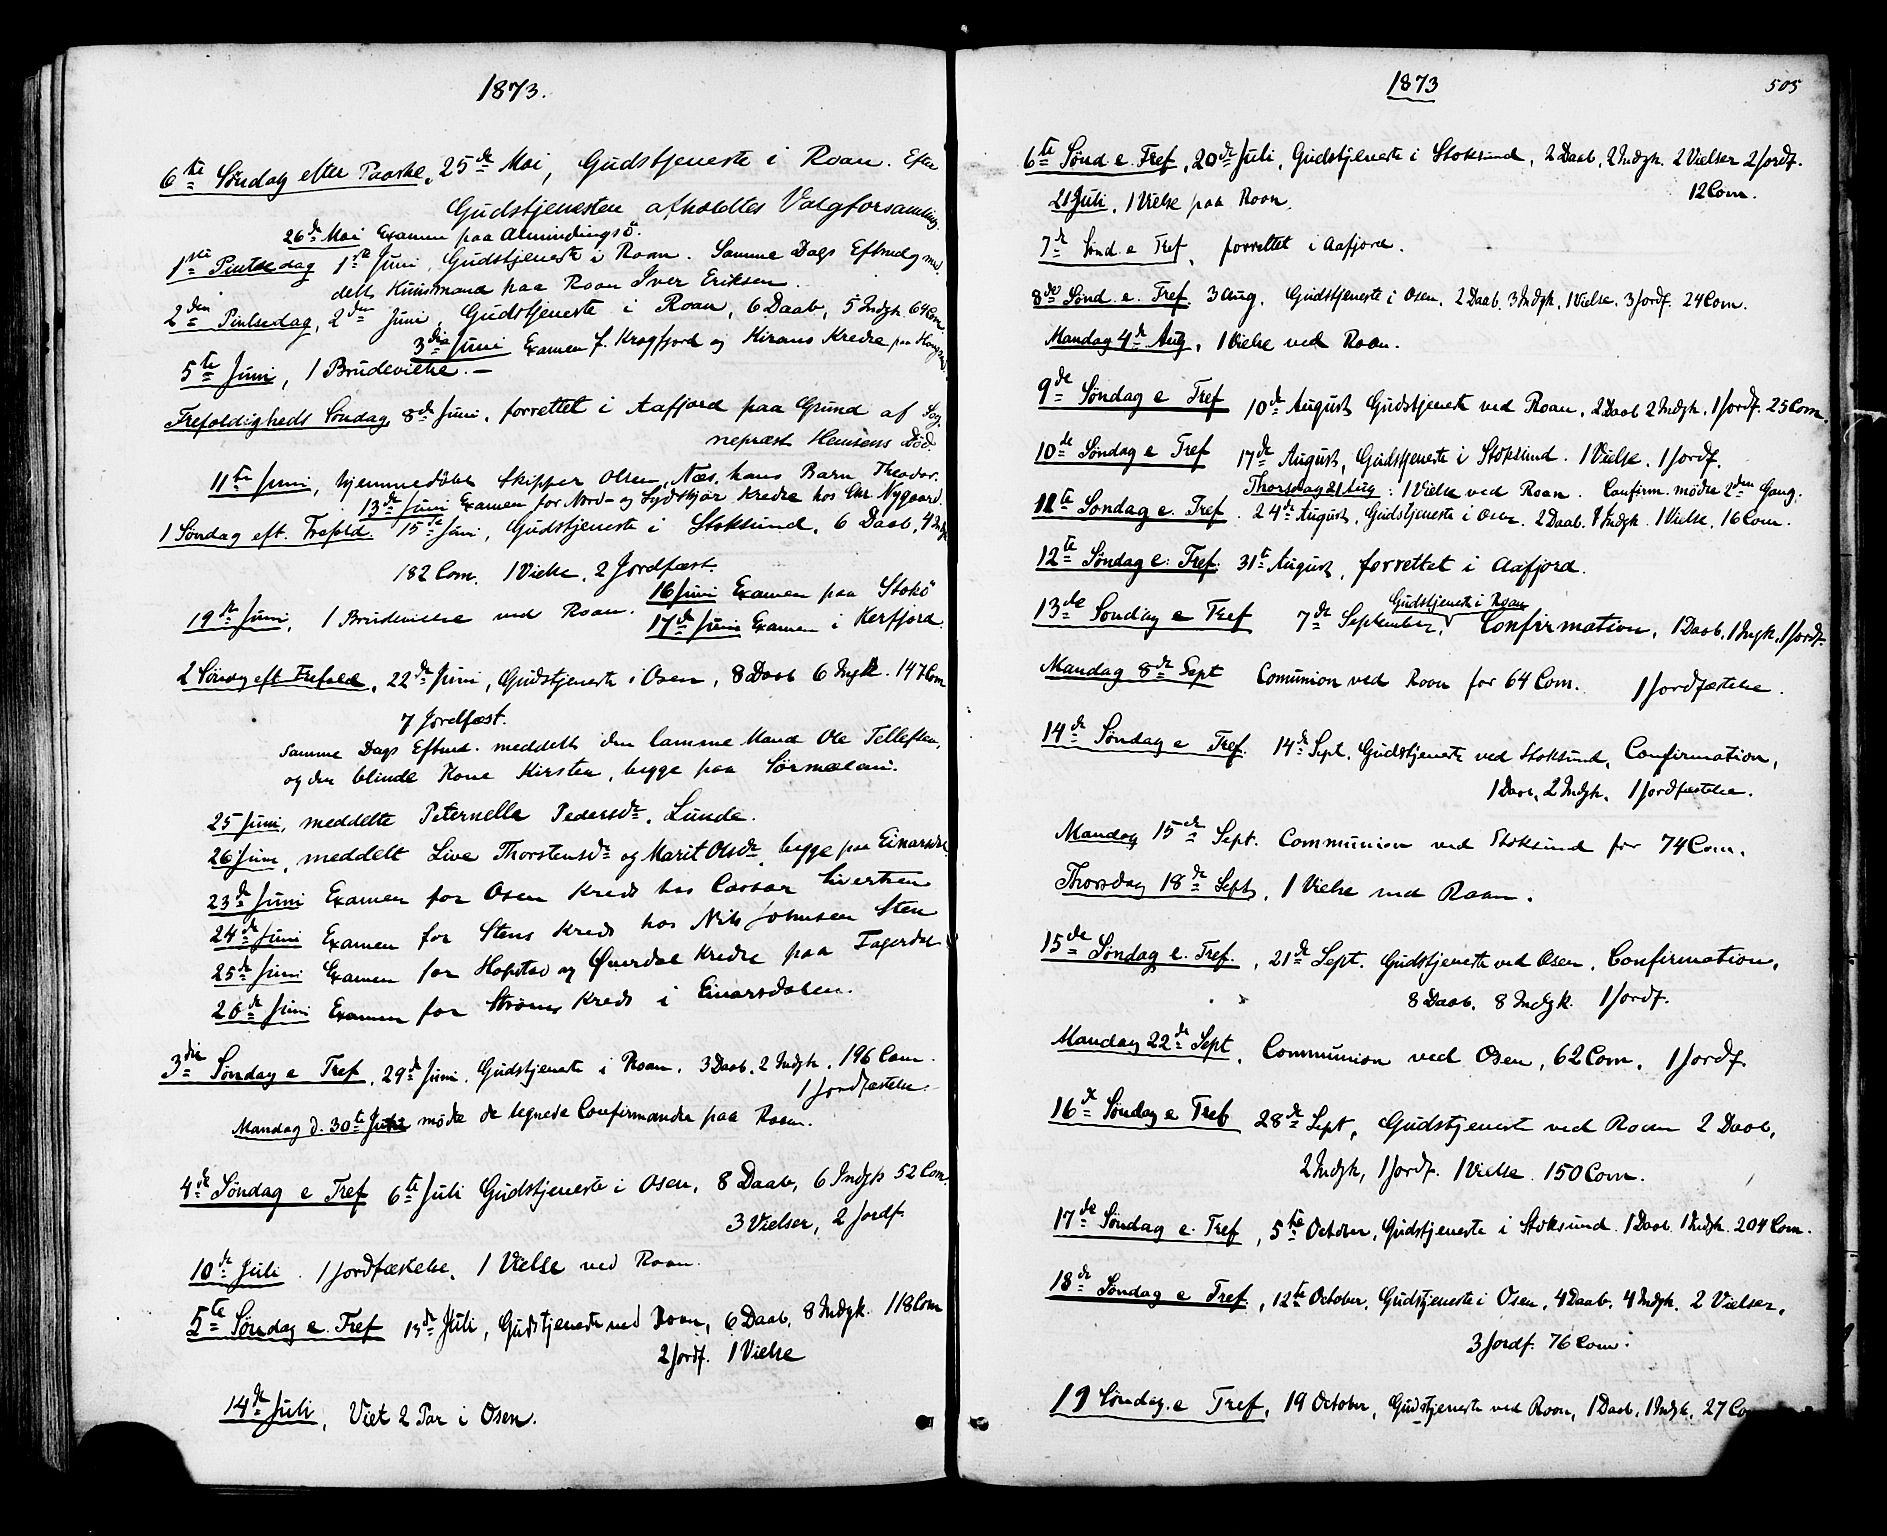 1873.
6te Søndag efter Paaske, 25de Mai, Gudstjeneste i Roan. Efter
Gudstjenesten afholdtes Valgforsamling.
26de Mai Examen paa Almindingsö.
1ste Pintsedag 1ste Juni, Gudstjeneste i Roan. Samme Dags Eftmdg med
delt Huusmand paa Roan Iver Eriksen.
2den Pintsedag, 2den Juni, Gudstjeneste i Roan, 6 Daab, 5 Indgk. 64 Com.
3die Juni Examen f. Kragfjord og Kirans Kredse paa
5te Juni, 1 Brudevielse.—
Trefoldigheds Søndag 8de Juni, forrettet i Aafjord paa Grund af Sog
nepræst Hensens Död.
11te Juni, hjemmedöbt Skipper Olsen, Næs, hans Barn Theodor.
13de Juni Examen for Nord- og Sydskjør Kredse hos Chr Nygaard.
1 Søndag eft. Trefold. 15de Juni, Gudstjeneste i Stoksund, 6 Daab, 4 Indgk
182 Com. 1 Vielse, 2 Jordfæst.
16 Juni Examen paa Stokö
19de Juni, 1 Brudevielse ved Roan.
17de Juni Examen i Kerfjord.
2 Søndag eft Trefold, 22de Juni, Gudstjeneste i Osen, 8 Daab 6 Ingk. 147 Com
7 Jordfæst.
Samme Dags Eftmd. meddelt den lamme Mand Ole Tellefsen,
og den blinde Kone Kirsten, begge paa Sørmælan.
25 Juni, meddelte Peternelle Pedersdr, Lunde.
26 Juni, meddelt Live Thorstensdr og Marit Olsdr, begge paa Einarsdal
23de Juni Examen for Osen Kreds hos Caspar Sivertsen
24de Juni Examen for Stens Kreds hos Nils Johnsen Sten
25de Juni Examen for Hopstad og Øverdal Kredse paa Fagerdal
26de Juni Examen for Strøms Kreds i Einarsdalen.
3die Søndag e Tref, 29de Juni, Gudstjeneste i Roan, 3 Daab, 2 Indgk, 196 Com.
1 Jordfæstelse.
Mandag d. 30te Juni mødte de tegnede Confirmander paa Roan.
4de Søndag e Tref 6te Juli Gudstjeneste i Osen, 8 Daab, 6 Indgk 52 Com.
3 Vielser, 2 Jordf.
10de Juli. 1 Jordfæstelse, 1 Vielse ved Roan.
5te Søndag e. Tref 13de Juli, Gudstjeneste ved Roan, 6 Daab, 8 Indgk. 118 Com
2 Jordf. 1 Vielse
14de Juli, Viet 2 Par i Osen.
1873
505
6te Sønd e. Tref, 20de Juli, Gudstjeneste i Stoksund, 2 Daab, 2 Indgk. 2 Vielser 2 Jordf.
12 Com.
21 Juli, 1 Vielse paa Roan.
7de Sønd. e Tref, forrettet i Aafjord.
8de Sønd. e. Tref. 3 Aug. Gudstjeneste i Osen. 2 Daab. 3 Indgk, 1 Vielse. 3 Jordf. 24 Com.
Mandag 4de Aug, 1 Vielse ved Roan.
9de Søndag e Tref 10de August Gudstjeneste ved Roan, 2 Daab 2 Indgk, 1 Jordf. 25 Com.
10de Søndag e Tref 17de August, Gudstjeneste i Stoksund. 1 Vielse. 1 Jordf.
Thorsdag 21 Aug: 1 Vielse ved Roan. Confirm. mødte 2den Gang.
11te Søndag e. Tref. 24de August, Gudstjeneste i Osen. 2 Daab. 1 Indgk. 1 Vielse, 16 Com.
12te Søndag e. Tref. 31te August, forrettet i Aafjord.
13de Søndag e Tref 7de September, Gudstjeneste i Roan Confirmation, 1 Daab, 1 Ingk, 1 Jordf.
Mandag 8de Sept Comunion ved Roan for 64 Com. 1 Jordfæstelse.
14de Søndag e Tref. 14de Sept. Gudstjeneste ved Stoksund, Confirmation,
1 Daab, 2 Indgk, 1 Jordfæstelse.
Mandag 15de Sept. Communion ved Stoksund for 74 Com.
Thorsdag 18de Sept, 1 Vielse ved Roan.
15de Søndag e. Tref., 21de Sept. Gudstjeneste ved Osen, Confirmation,
8 Daab, 8 Indgk. 1 Jordf.
Mandag 22de Sept, Communion ved Osen, 62 Com, 1 Jordf.
16de Søndag e Tref 28de Sept, Gudstjeneste ved Roan 2 Daab,
2 Indgk, 1 Jordf. 1 Vielse. 150 Com.
17de Søndag e. Tref, 5te October, Gudstjeneste i Stoksund. 1 Daab 1 Indgk. 204 Com.
18de Søndag e Tref., 12te October, Gudstjeneste i Osen, 4 Daab, 4 Indgk. 2 Vielser,
3 Jordf. 76 Com.
19 Søndag. e Tref, 19 October, Gudstjeneste ved Roan, 1 Daab, 1 Indgk, 27 Co